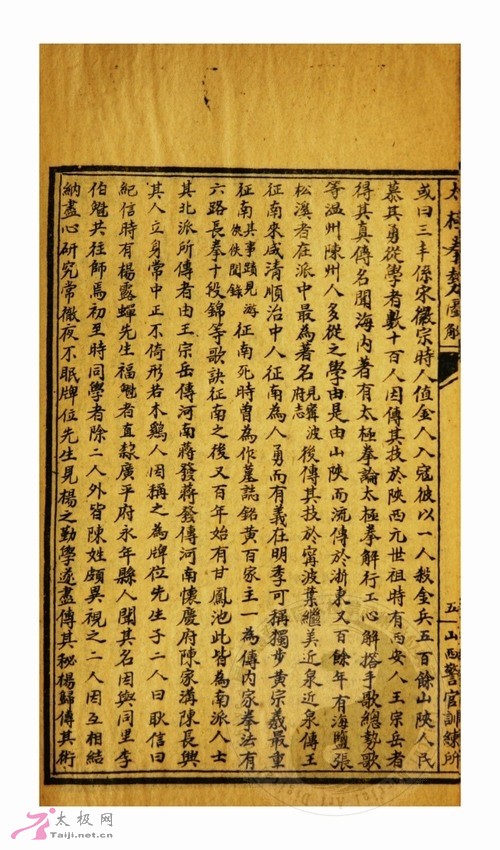 太極拳勢圖解
五
山西警官訓練所
或曰三丰係宋徽宗時人值金人入寇彼以一人殺金兵五百餘山陝人民
慕其勇從學者數十百人因傳其技於陝西元世祖時有西安人王宗岳者
得其真傳名聞海內著有太極拳論太極拳解行工心解搭手歌總勢歌
等温州陳州人多從之學由是由山陝而流傳於浙東又百餘年有海鹽張
松溪者在派中最為著名見寧波府志後傳其技於甯波葉繼美近泉近泉傳王
征南來咸清順治中人征南為人勇而有義在明季可稱獨步黃宗羲最重
征南其事蹟見游俠佚聞錄征南死時曾為作墓誌銘黃百家主一為傳內家拳法有
六路長拳十段錦等歌訣征南之後又百年始有甘鳳池此皆為南派人士
其北派所傳者由王宗岳傳河南蔣發蔣發傳河南懷慶府陳家溝陳長興
其人立身常中正不倚形若木鷄人因稱之為牌位先生子二人曰耿信曰
紀信時有楊露蟬先生福魁者直隸廣平府永年縣人聞其名因與同里李
伯魁共往師焉初至時同學者除二人外皆陳姓頗異視之二人因互相結
納盡心研究常徹夜不眠牌位先生見楊之勤學遂盡傳其秘楊歸傳其術
太极网
Taiji.net.cn